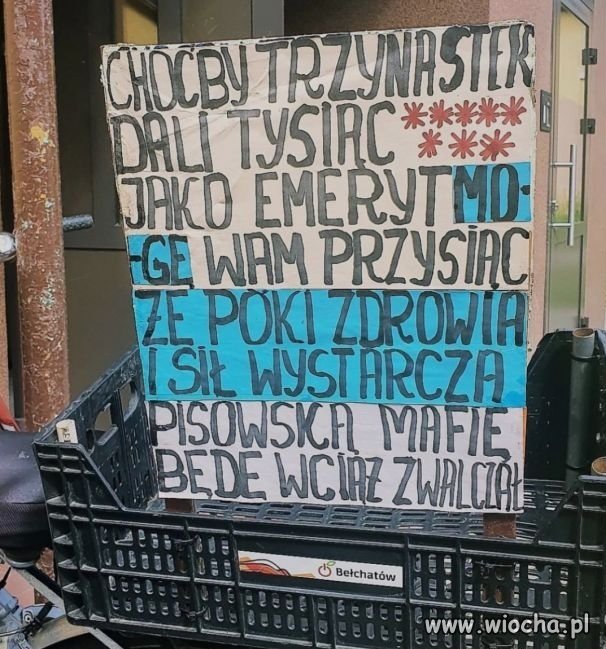 CHOĆBY TRZYNASTEK
DALI TYSIĄC *****
***
JAKO EMERYT MO-
-GĘ WAM PRZYSIĄC
ŻE PÓKI ZDROWIA
I SIŁ WYSTARCZA
PISOWSKĄ MAFIĘ
BĘDĘ WCIĄŻ ZWALCZAŁ
Bełchatów
www.wiocha.pl